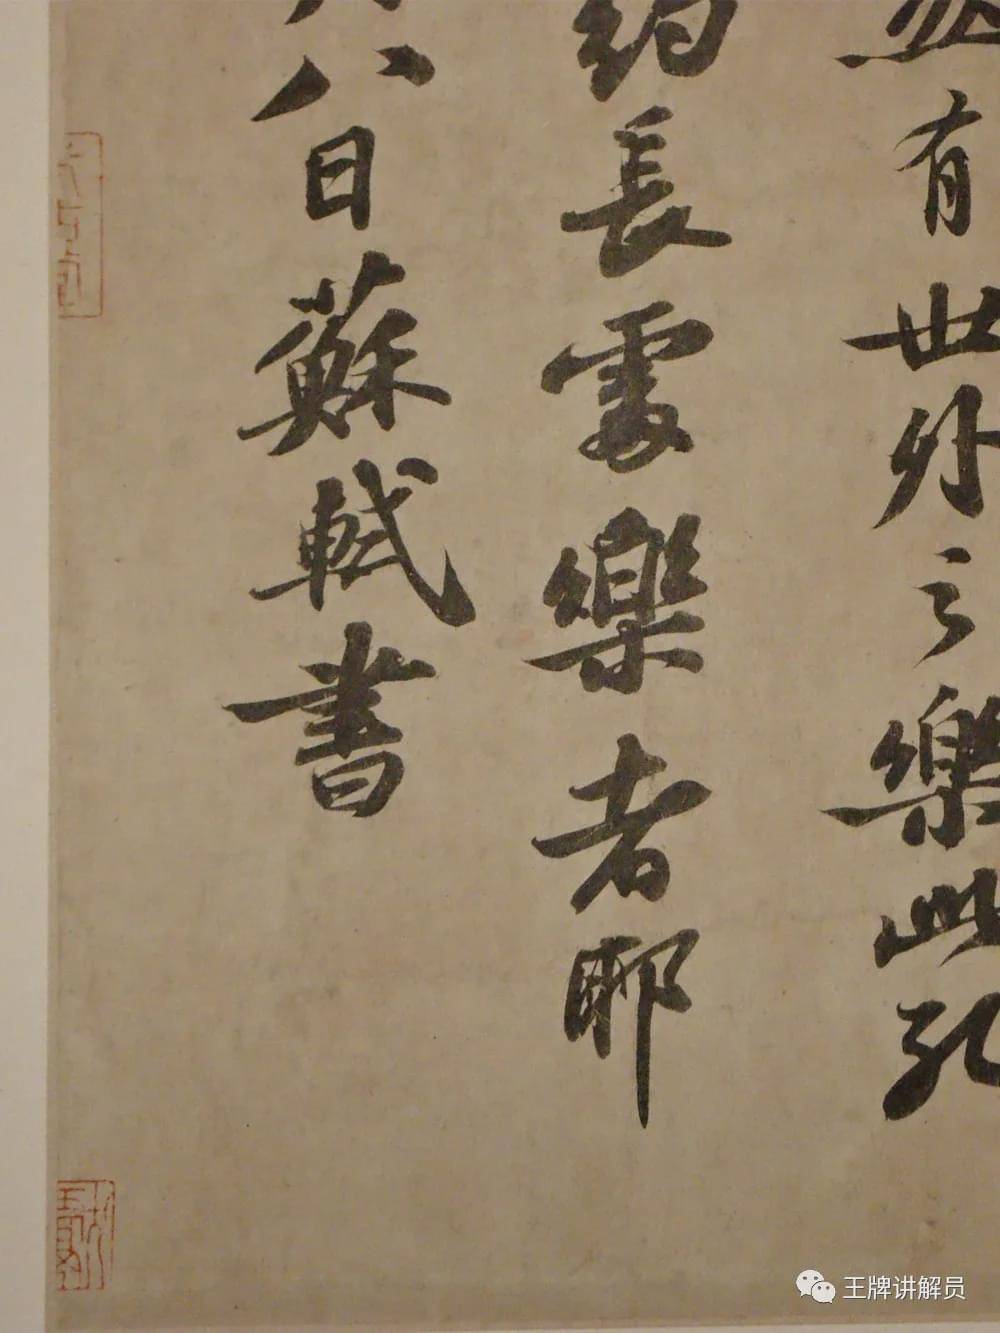 有世外之樂此孔
約長處樂者耶
八日蘇軾書
王牌讲解员